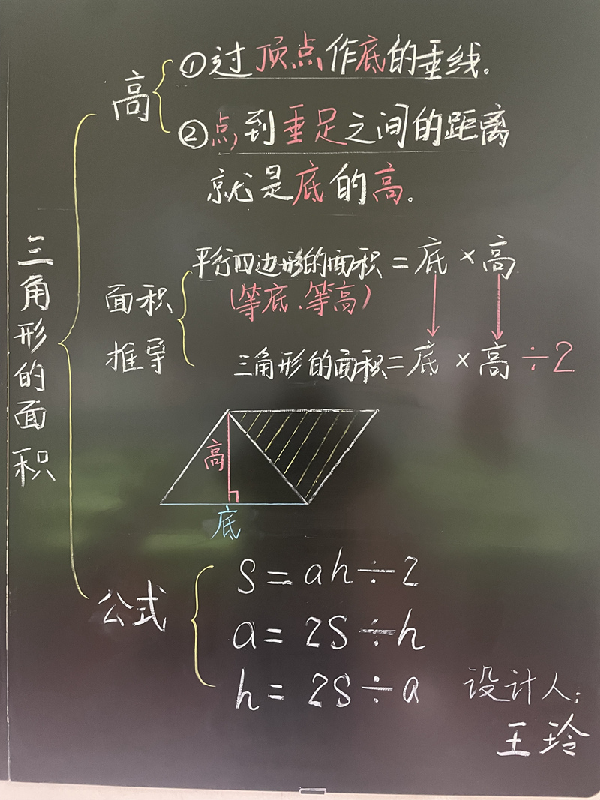 三角形的面积
高
①过顶点作底的垂线.
②点到垂足之间的距离
就是底的高.
面积
推导
平行四边形的面积=底×高
(等底、等高)
三角形的面积=底×高÷2
高
底
公式
S=ah÷2
a=2S÷h
h=2S÷a
设计人:
王玲